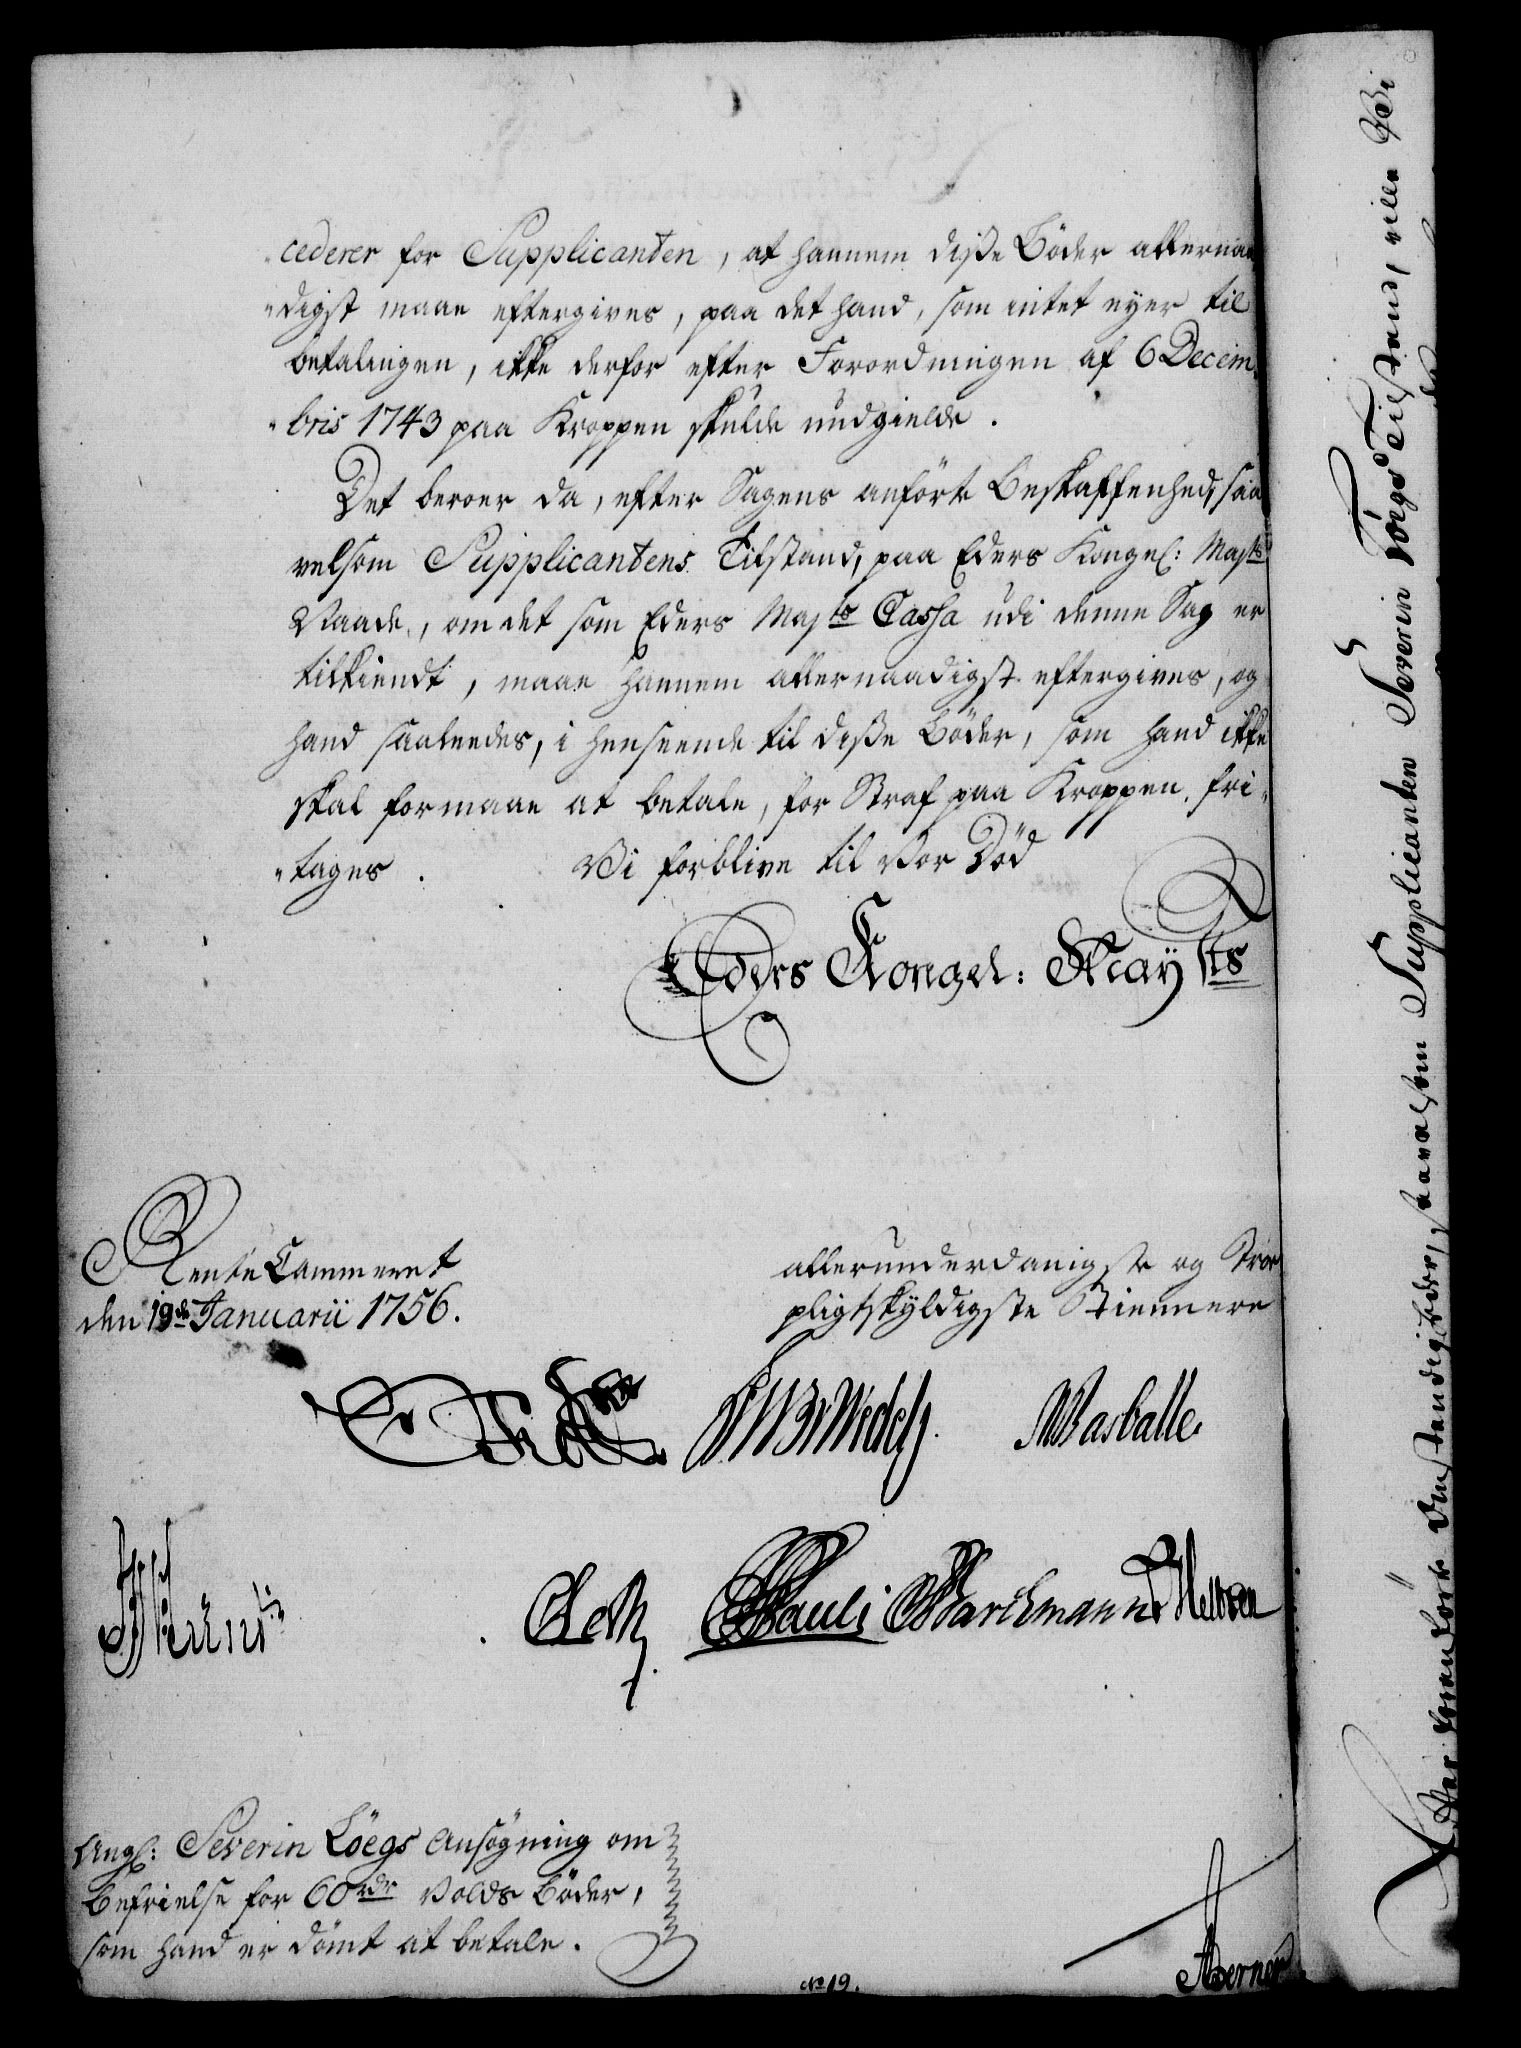 "cederer for Supplicanten, at hannem disse Böder allernaa
"digst maae eftergives, paa det hand, som intet eyer til
betalingen, ikke derfor efter Forordningen af 6 Decem
"bris 1743 paa Kroppen skulde undgielde.
Det beroer da, efter Sagens anförte Beskaffenhed, saa
velsom Supplicantens Tilstand, paa Eders Kongel: Majts
Naade, om det som Eders Majts Cassa udi denne Sag er
tilkiendt, maae hannem allernaadigst eftergives, og
hand saaleedes, i henseende til disse Böder, som hand ikke
skal formaae at betale, for Straf paa Kroppen, fri"
"tages. Vi forblive til Vor Död
Eders Kongel: Maysts
RenteCammeret
den 19de Januarii 1756.
allerunderdanigste og Troe
pligtskyldigste Tiennere
Wedel
Masballe
Pauli Marckmann
Ang: Severin Löegs Ansøgning om
Befrielse for 60 rdr Volds Böder,
som hand er dömt at betale.
No 19.
Berner
Efter saa vel som Supplicanten Severin Löegs Tilstand, ville Vi